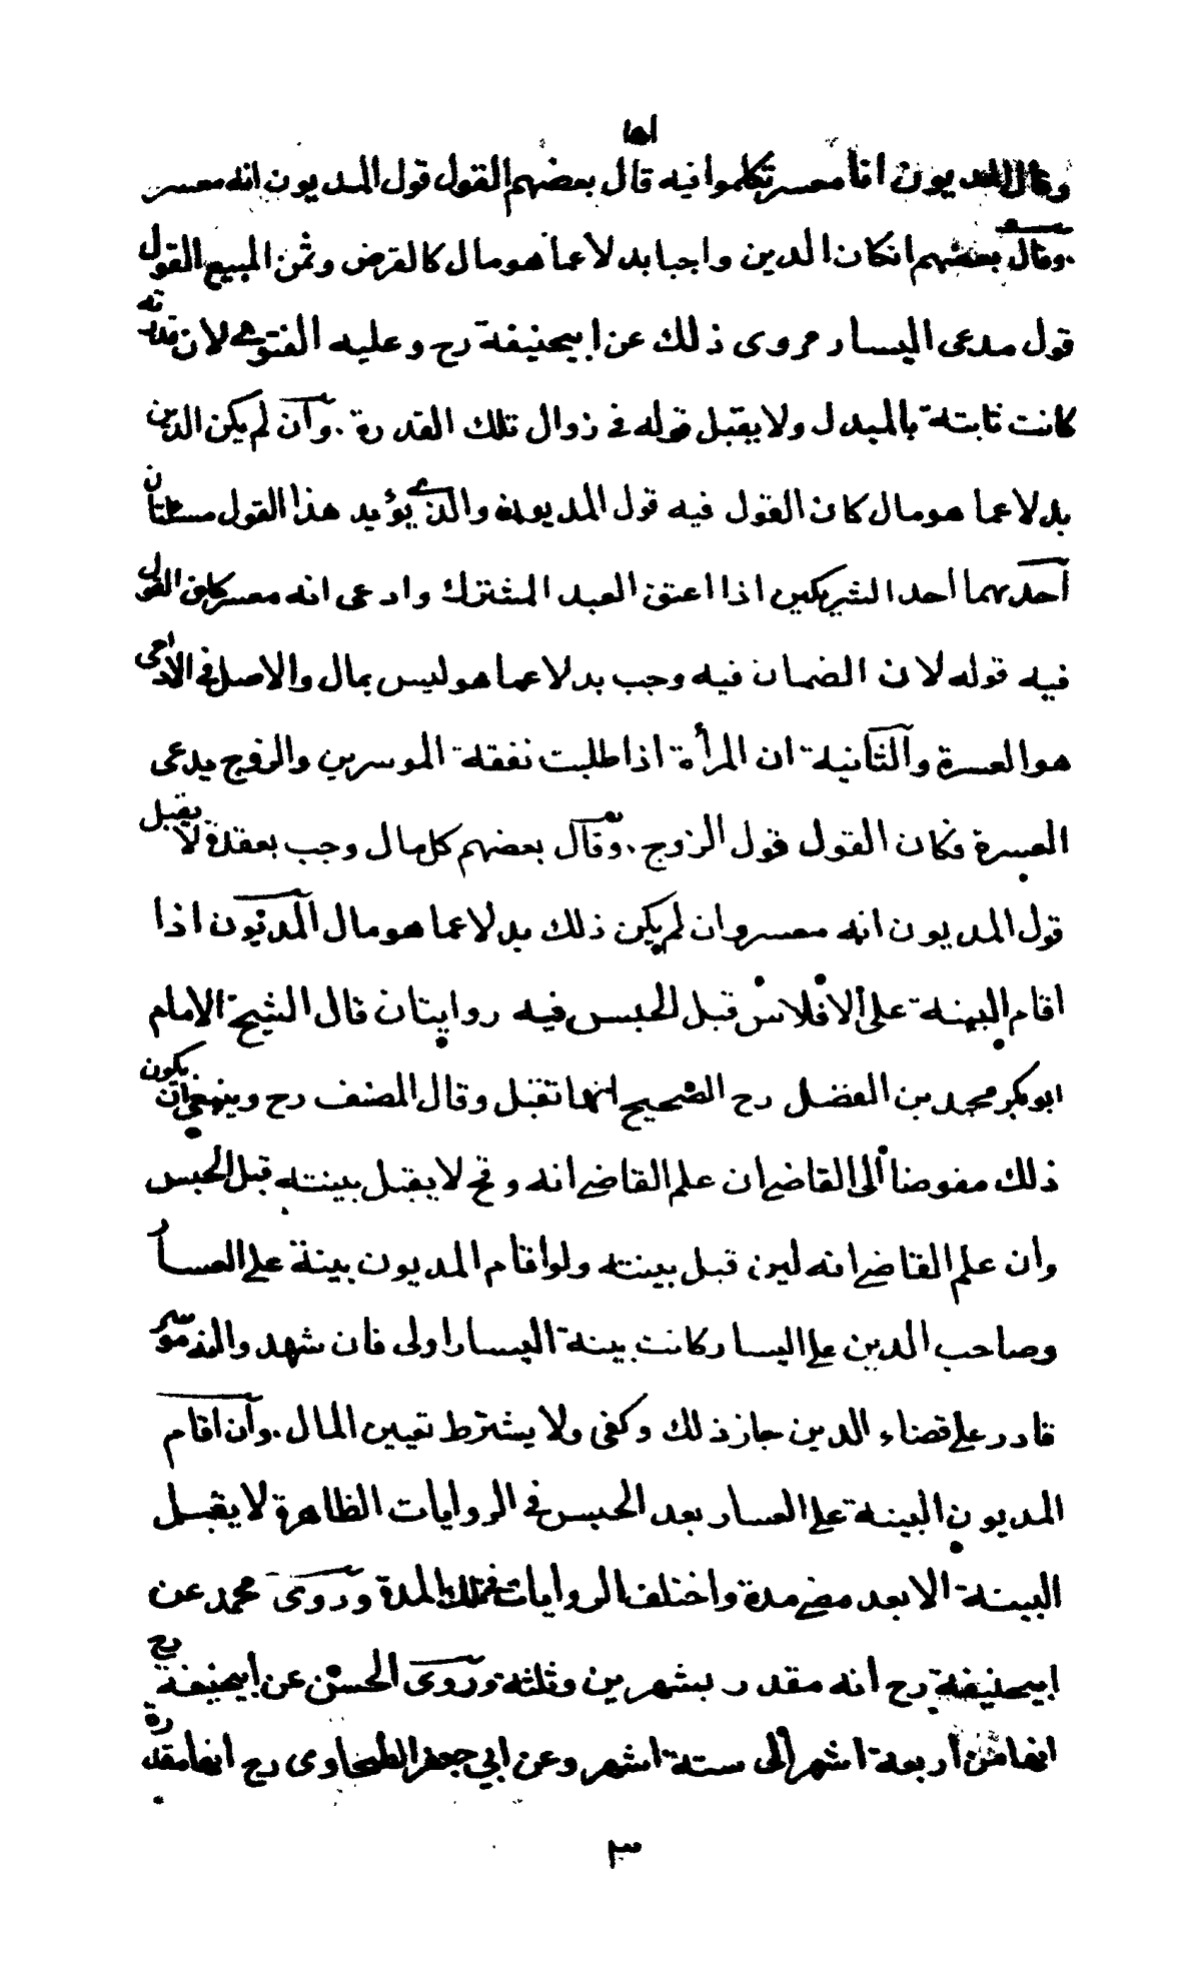 ١٥١
وقال المديون انا معسر تكلموا فيه قال بعضهم القول قول المديون انه معسر
وقال بعضهم انكان الدين واجبا بدلا عما هو مال كالقرض وثمن المبيع القول
قول مدعى اليسار مروى ذلك عن ابيحنيفة رح وعليه الفتوى لان قدرته
كانت ثابتة بالمبدل ولا يقبل قوله في زوال تلك القدرة . وان لم يكن الدين
بدلا عما هو مال كان القول فيه قول المديون والذى يؤيد هذا القول مسئلتان
احدیهما احد الشريكين اذا اعتق العبد المشترك وادعى انه معسر كان القول
فيه قوله لان الضمان فيه وجب بدلا عما هو ليس بمال والاصل في الادمى
هو العسرة والثانية ان المرأة اذا طلبت نفقة الموسرين والزوج يدعى
العسرة فكان القول قول الزوج . وقال بعضهم كل مال وجب بعقدة لا يقبل
قول المديون انه معسر وان لم يكن ذلك بدلا عما هو مال المديون اذا
اقام البينة على الافلاس قبل الحبس فيه روايتان قال الشيخ الامام
ابو بكر محمد بن الفضل رح الصحيح انها تقبل وقال المصنف رح وينبغى ان يكون
ذلك مفوضا الى القاضى ان علم القاضى انه وقح لا يقبل بينته قبل الحبس
وان علم القاضى انه لين قبل بينته ولو اقام المديون بينة على العسار
وصاحب الدين على اليسار كانت بينة اليسار اولى فان شهدوا انه موسر
قادر على قضاء الدين جاز ذلك وكفى ولا يشترط تعيين المال . وان اقام
المديون البينة على العسار بعد الحبس في الروايات الظاهرة لا يقبل
البينة الا بعد مضى مدة واختلف الروايات في تلك المدة وروى محمد عن
ابيحنيفة رح انه مقدر بشهرين وثلثة وروى الحسن عن ابيحنيفة رح
انها من اربعة اشهر الى ستة اشهر وعن ابي جعفر الطحاوى رح انها مقدرة
٣